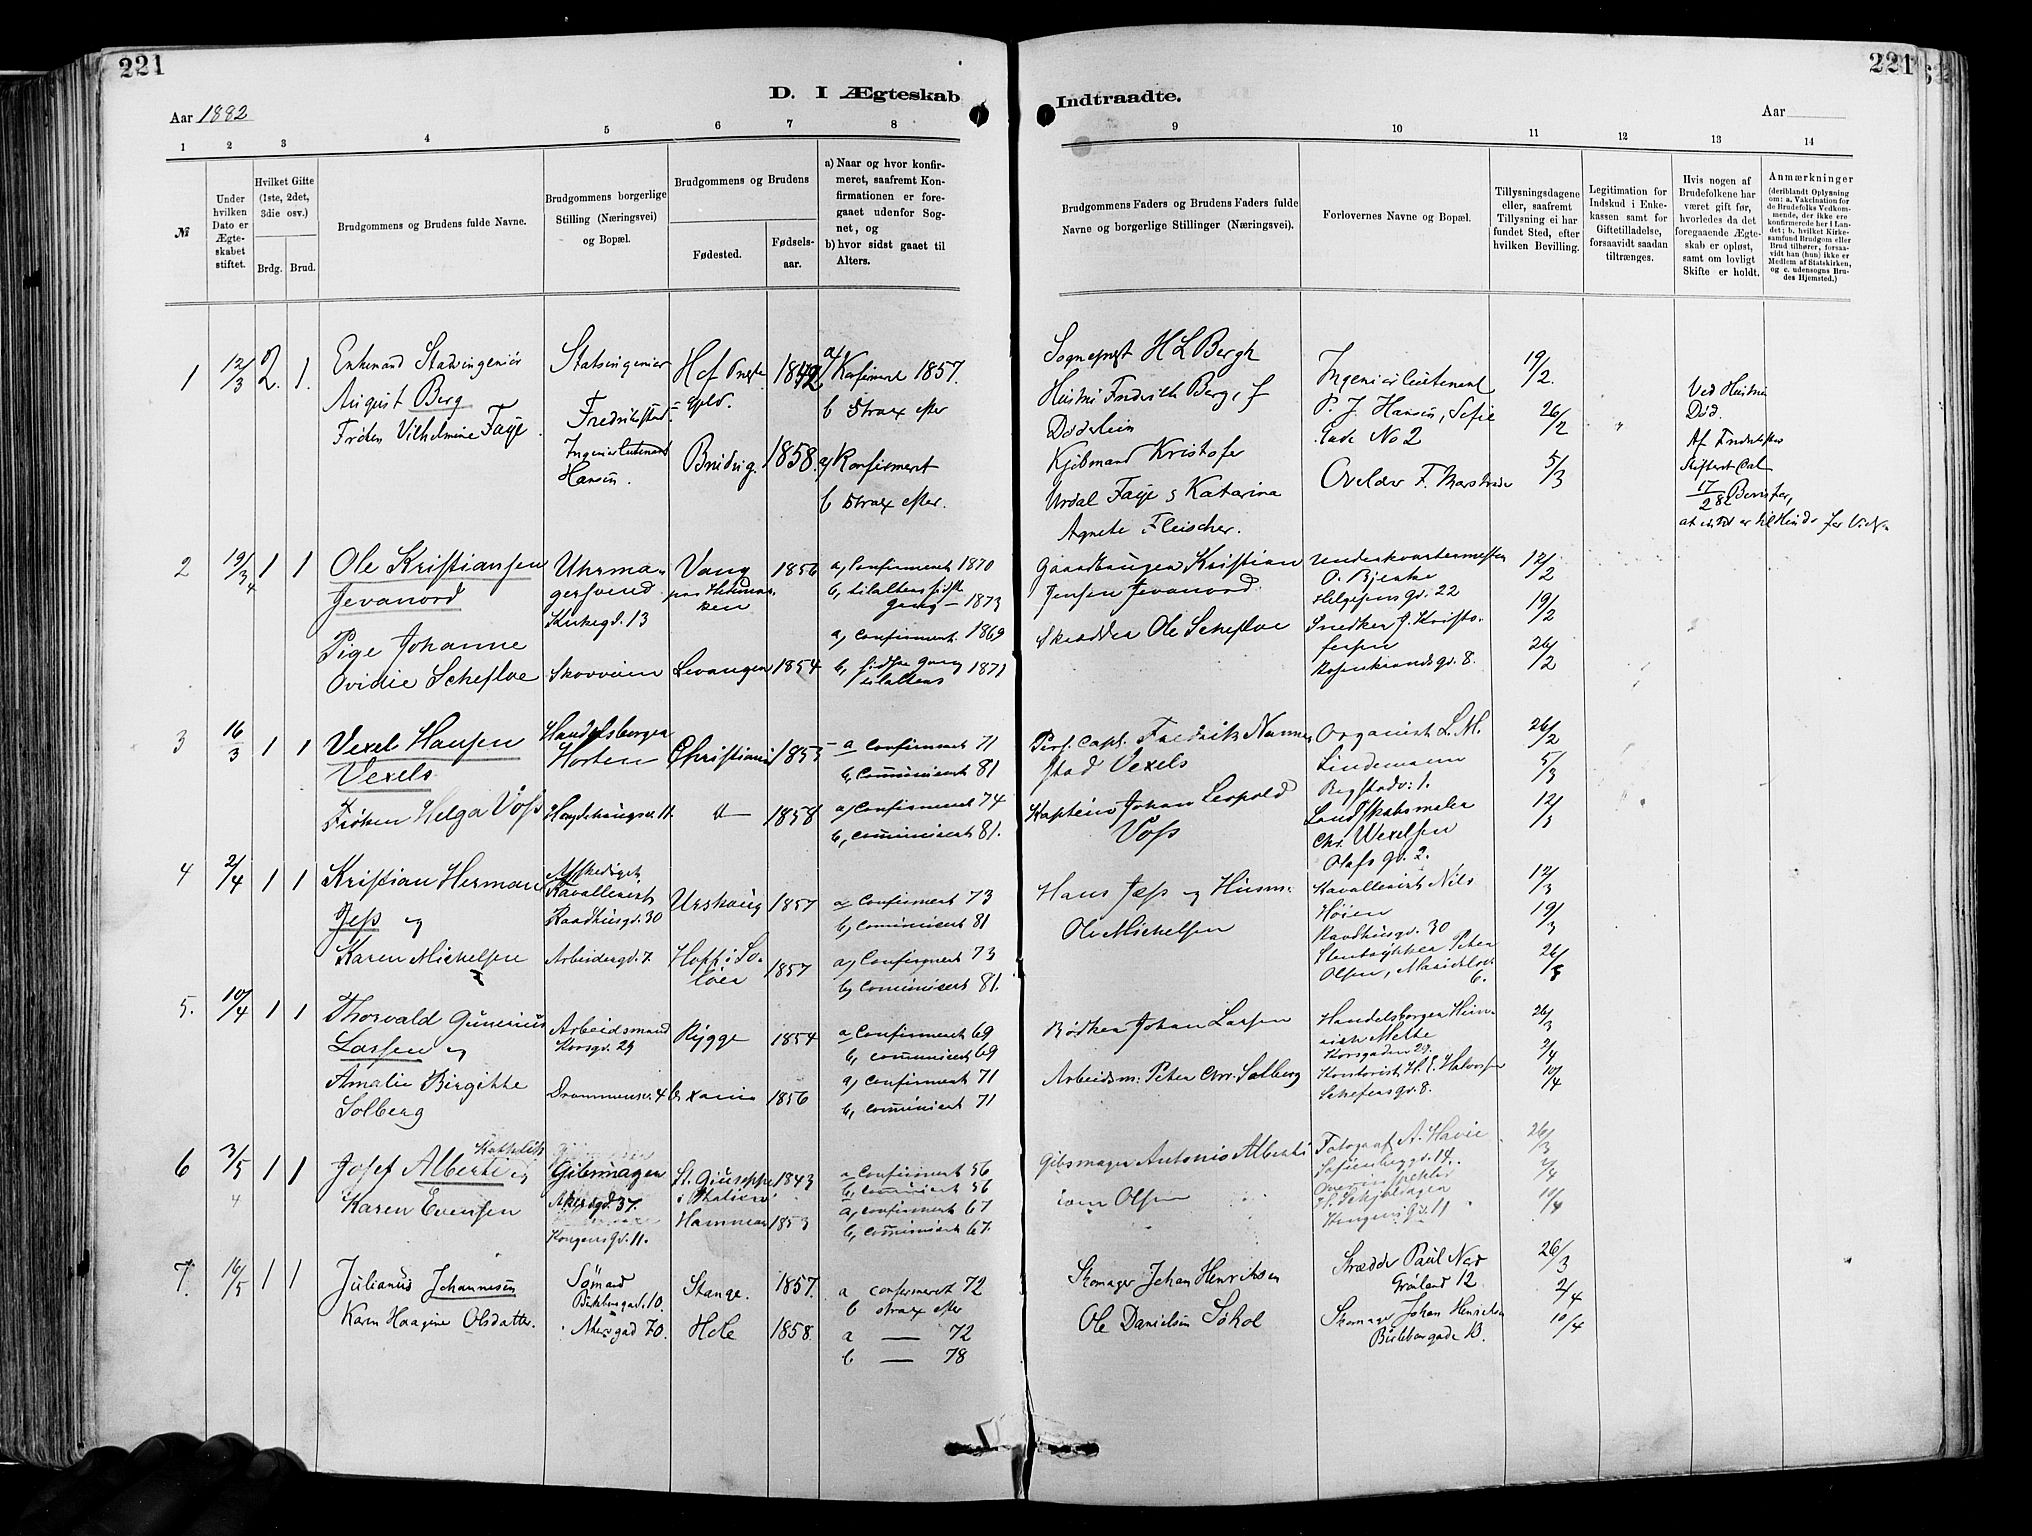 221
221
D. I Ægteskab
Indtraadte.
Aar 1882
Aar
1 2 3 4 5 6 7 8
9 10 11 12 13 14
№
Under hvilken Dato er Ægteskabet stiftet.
Hvilket Gifte (1ste, 2det, 3die osv.)
Brdg. Brud.
Brudgommens og Brudens fulde Navne.
Brudgommens borgerlige Stilling (Næringsvei) og Bopæl.
Brudgommens og Brudens
Fødested.
Fødsels-aar.
a) Naar og hvor konfir-
meret, saafremt Kon-
firmationen er fore-
gaaet udenfor Sog-
net, og
b) hvor sidst gaaet til
Alters.
Brudgommens Faders og Brudens Faders fulde
Navne og borgerlige Stillinger (Næringsvei).
Forlovernes Navne og Bopæl.
Tillysningsdagene
eller, saafremt
Tillysning ei har
fundet Sted, efter
hvilken Bevilling.
Legitimation for
Indskud i Enke-
kassen samt for
Giftetilladelse,
forsaavidt saadan
tiltrænges.
Hvis nogen af
Brudefolkene har
været gift før,
hvorledes da det
foregaaende Ægte-
skab er opløst,
samt om lovligt
Skifte er holdt.
Anmærkninger
(deriblandt Oplysning
om: a. Vakcination for
de Brudefolks Vedkom-
mende, der ikke ere
konfirmerede her i Lan-
det; b. hvilket Kirke-
samfund Brudgom eller
Brud tilhører, forsaa-
vidt han (hun) ikke er
Medlem af Statskirken,
og c. udensogns Bru-
des Hjemsted.)
1 12/3 2. 1. Enkemand Stadsingeniør
August Berg
Frøken Vilhelmine Faye
Statsingeniør
Fredrikstad
Ingeniørlieutenant
Hansen.
Hof Præste
gjeld. 1842
Konfirmeret 1857.
b strax efter
1858. a) Konfirmeret
b strax efter.
Sognepræst H L Bergh
Døderlein
Kjøbmand Kristofer
Urdal Faye & Katarina
Agnete Fleischer.
Ingeniørlieutenant
P. J. Hansen, Sofie
gade No 2
19/2.
26/2
5/3
Ved Hustru
Død.
2 19/3 1 1 Ole Kristiansen
Jevanord
Pige Johanne
Ovidie Schefloe
Uhrma-
gersvend
Kirkegd. 13
Skovveien
Vang 1856
Levanger 1854
a) Confirmeret 1870
b, tilalters sidste
gang – 1873
a) Confirmeret 1869
b, sidste gang 1871
tilalters
Gaardbruger Kristian
Jensen Jevanord
Skrædder Ole Schefloe
Underkvartermester
O. Bjerke
Helgesensgd. 22
Snedker J. Kristo-
fersen
Rosenkrandsgd. 8.
12/2
19/2
26/2
3 16/3 1 1 Vexel Hansen
Vexels
Frøken Helga Voss
Handelsborger
Horten
Christiania 1853
1858
a Confirmeret 71
b, Communiceret 81
a) Confirmeret 74
b, Communiceret 81.
Fredrik Nanne-
stad Vexels
Kaptein Johan Leopold
Voss
Organist L. M.
Lindemann
Landskabsmaler
Chr. Wexelsen
Olafs gd. 2.
26/2
5/3
12/3
4 2/4 1 1 Kristian Herman
Jess og
Karen Mickelsen
Afskediget
Kavallerist
Raadhusgd. 30
Arbeidergd. 7
Urskoug 1857
Hoff i So-
løer 1857
a) Confirmeret 73
b) Communiceret 81
a) Confirmeret 73
b) Communiceret 81.
Hans Jess og Husm:
Ole Mickelsen
Kavallerist Nils
Høien
Raadhusgd. 30
Stenhugger Peter
Olsen, Maridalsv.
6.
12/3
19/3
26/3
5. 10/4 1 1 Thorvald Gunerius
Larsen og
Amalie Birgitte
Solberg
Arbeidsmand
Korsgd. 29
Drammensv. 4
Rygge 1854
1856
a Confirmeret 69
b, Communiceret 69
a) Confirmeret 71
b, Communiceret 71
Bødker Johan Larsen
Arbeidsm: Peter Chr. Solberg
Handelsborger Hein-
rich Melbe
Korsgaden 29.
Kontorist H. E. Halvorsen
Schefersgd. 8.
26/3
2/4
10/4
6 3/5 1 1 Josef Alberti og Katholik
Karen Evensen
Gibsmager
Akersgd. 37.
Kongensgd. 11.
St. Giuseppe 1843
i Italien
Hammer 1853
a Confirmeret 56
b, Communiceret 56
a) Confirmeret 67
b, Communiceret 67.
Gibsmager Antonio Alberti
Iver Olsen
Fotograf A. Havie
Sofienberggd. 14.
H. Skjeldagen
Kongensgd. 11
26/3
2/4
10/4
7. 16/5 1 1 Julianus Johannesen
Karen Haagine Olsdatter.
Sømad
Birkeborgad. 10.
Akersgad 70.
Stange. 1857.
Hole 1858.
a confirmeret 72
b strax efter
a — 72
b — 78
Skomager Johan Henriksen
Ole Danielsen Søhol
Skrædder Paul Nad
Grønland 12
Skomager Johan Henriksen
Birkeborgade 13.
26/3
2/4
10/4